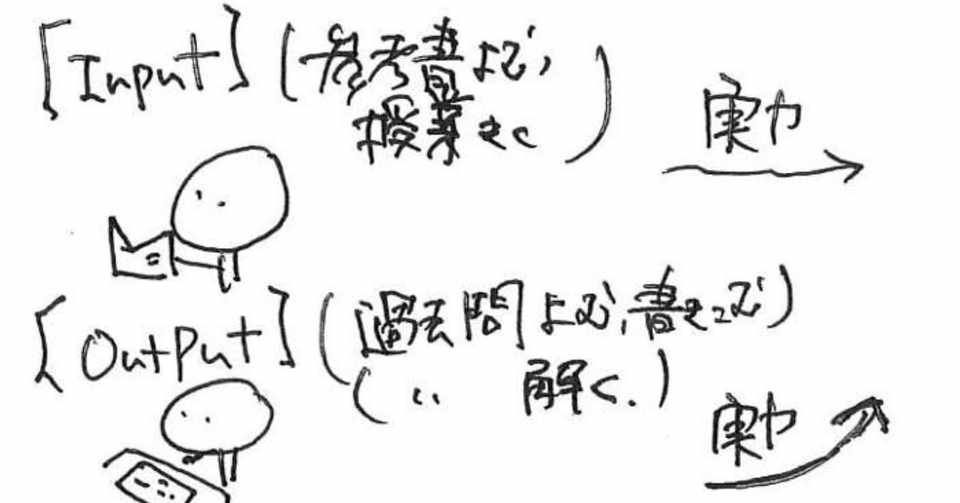 [Input] (参考書よむ,
授業きく)
実力
[OutPut] (過去問よむ,書きこむ)
( 〃 解く.)
実力